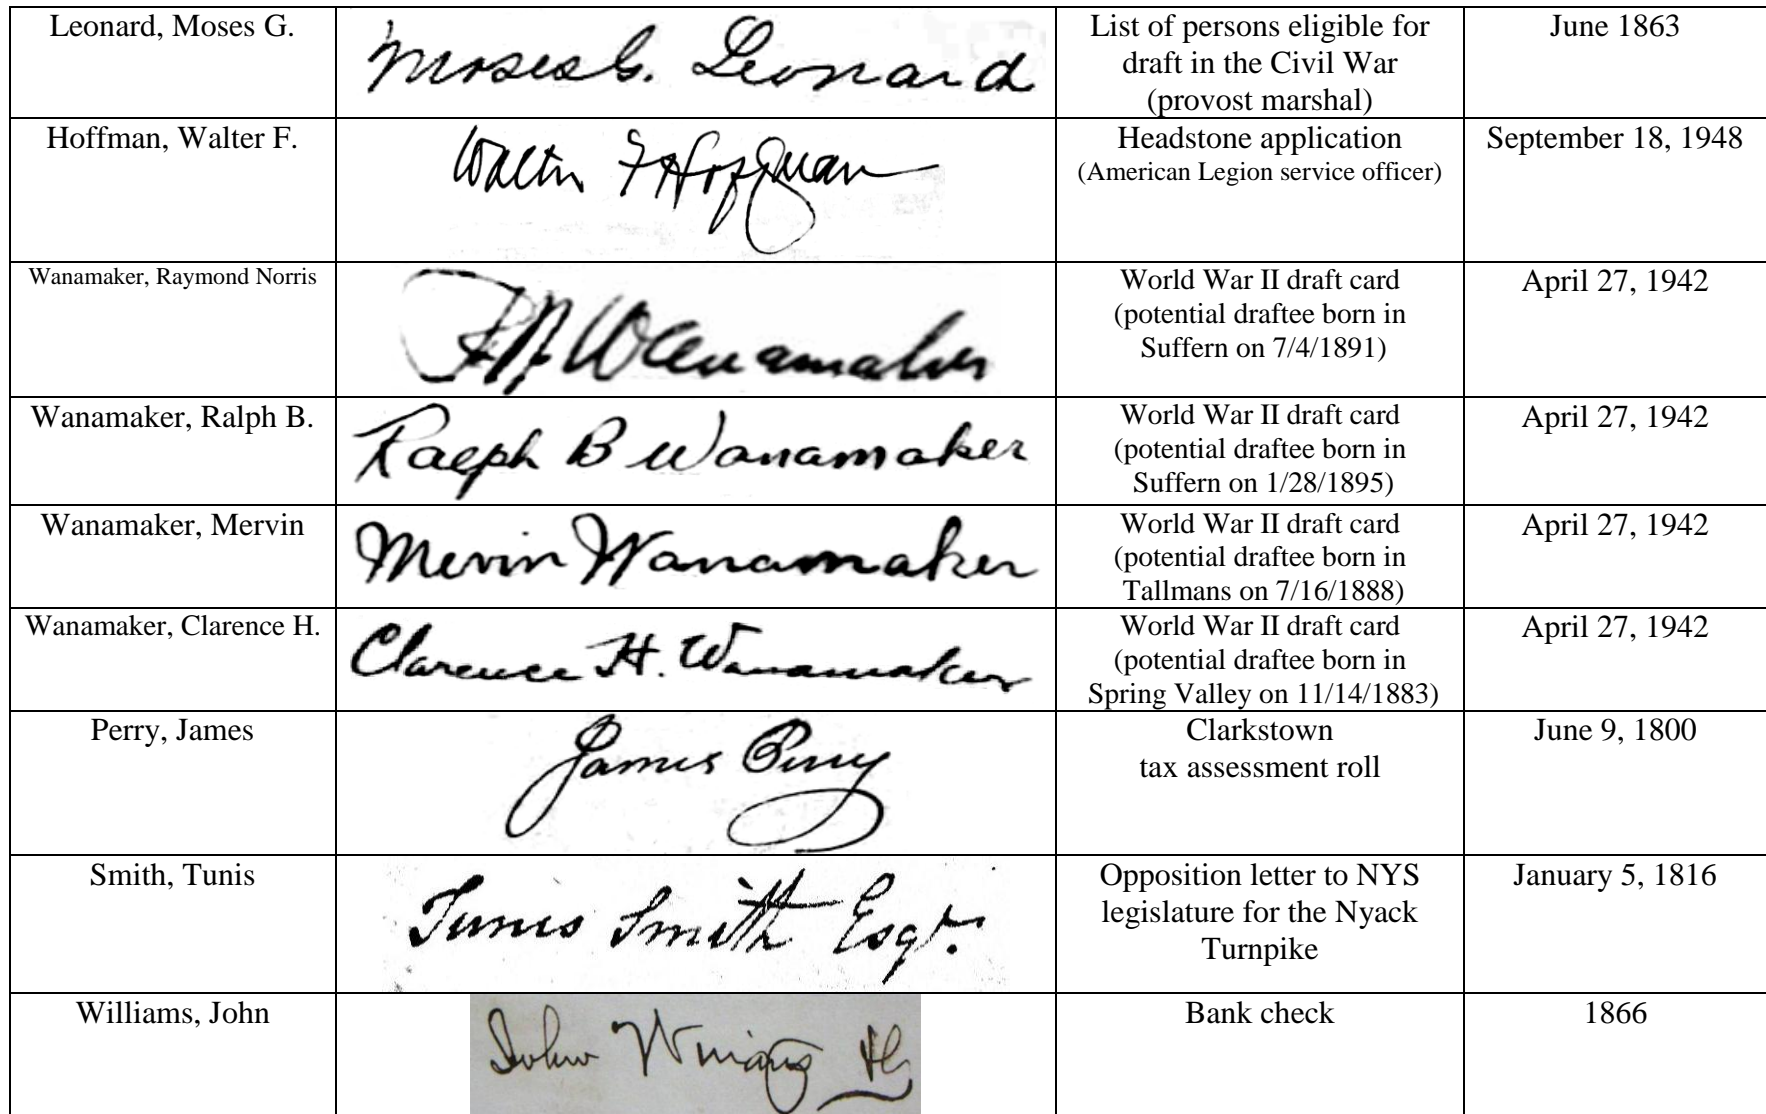 Leonard, Moses G.
Moses G. Leonard
List of persons eligible for
draft in the Civil War
(provost marshal)
June 1863
Hoffman, Walter F.
Walter F Hoffman
Headstone application
(American Legion service officer)
September 18, 1948
Wanamaker, Raymond Norris
RN Wanamaker
World War II draft card
(potential draftee born in
Suffern on 7/4/1891)
April 27, 1942
Wanamaker, Ralph B.
Ralph B Wanamaker
World War II draft card
(potential draftee born in
Suffern on 1/28/1895)
April 27, 1942
Wanamaker, Mervin
Mervin Wanamaker
World War II draft card
(potential draftee born in
Tallmans on 7/16/1888)
April 27, 1942
Wanamaker, Clarence H.
Clarence H. Wanamaker
World War II draft card
(potential draftee born in
Spring Valley on 11/14/1883)
April 27, 1942
Perry, James
James Perry
Clarkstown
tax assessment roll
June 9, 1800
Smith, Tunis
Tunis Smith Esqr.
Opposition letter to NYS
legislature for the Nyack
Turnpike
January 5, 1816
Williams, John
John Williams
Bank check
1866